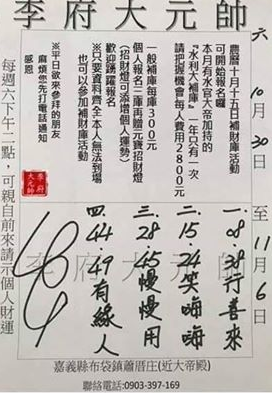 李府大元帥
六
10月30日
至
11月6日
農曆十月十五日補財庫活動
可開始報名囉
本月有水官大帝加持的
"水利大補庫"一年只有一次
請把握機會每人費用2800元
一般補庫每庫300元
個人報名三庫再贈元寶招財燈
(招財燈可添增個人運勢)
歡迎踴躍報名
※只要資料齊全本人無法到場
也可以參加補財庫活動
※平日欲來參拜的朋友
麻煩您先打電話通知
感恩
李府大元帥
每週六下午二點,可親自前來請示個人財運
一.08.38行善來
二.15.24笑嗨嗨
三.28.45慢慢用
四.44.49有緣人
李府大元帥
嘉義縣布袋鎮蕭厝庄(近大帝殿)
聯絡電話:0903-397-169